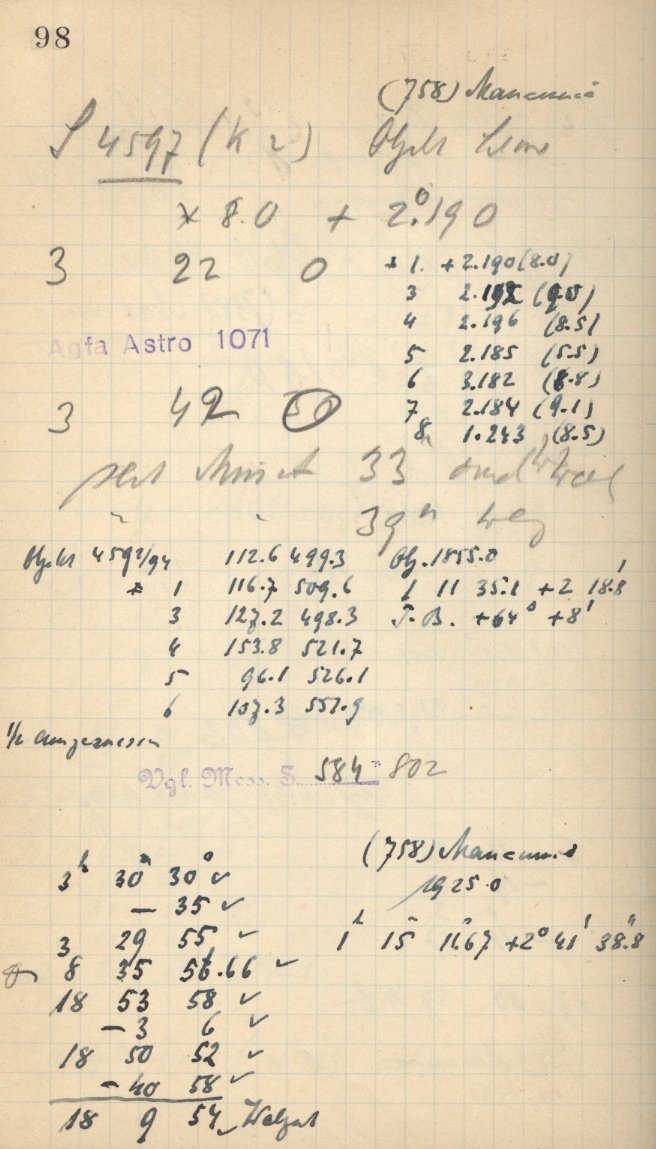 98
(758) Mancunia
S 4597 (K 2) Objekt
* 8.0 + 2°.190
3 22 0
* 1. + 2.190 (8.0)
3 2.192 (9.0)
4 2.196 (8.5)
Agfa Astro 1071
5 2.185 (5.5)
6 3.182 (8.8)
3 42 50
7 2.184 (9.1)
8 1.243 (8.5)
33
39
Objekt 4592/94 112.6 499.3 Obj. 1855.0
* 1 116.7 509.6 1 11 35.1 +2 18.8'
3 127.2 498.3 T.B. +64° +8'
4 153.8 521.7
5 96.1 526.1
6 107.3 557.9
1/2 ausgemessen
Vgl. Mess. S. 584 802
(758) Mancunia
1925.0
3h 30m 30s ✓
— 35 ✓
3 29 55 ✓
1h 15m 11.67s +2° 41' 38.8"
8 35 56.66 ✓
18 53 58 ✓
— 3 6 ✓
18 50 52 ✓
— 40 58 ✓
18 9 54 Weltzeit